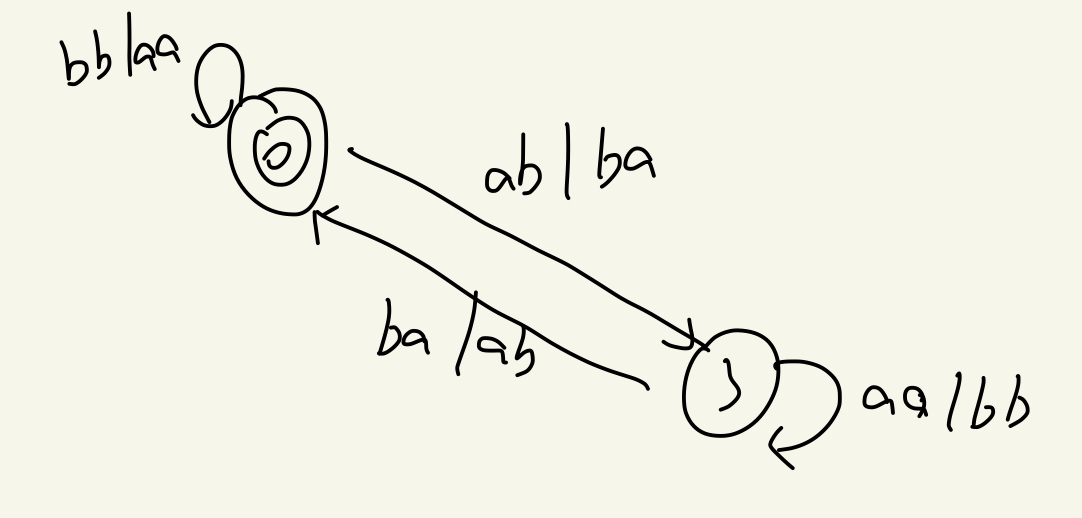 bb|aa
0
ab|ba
ba/ab
3
aa/bb